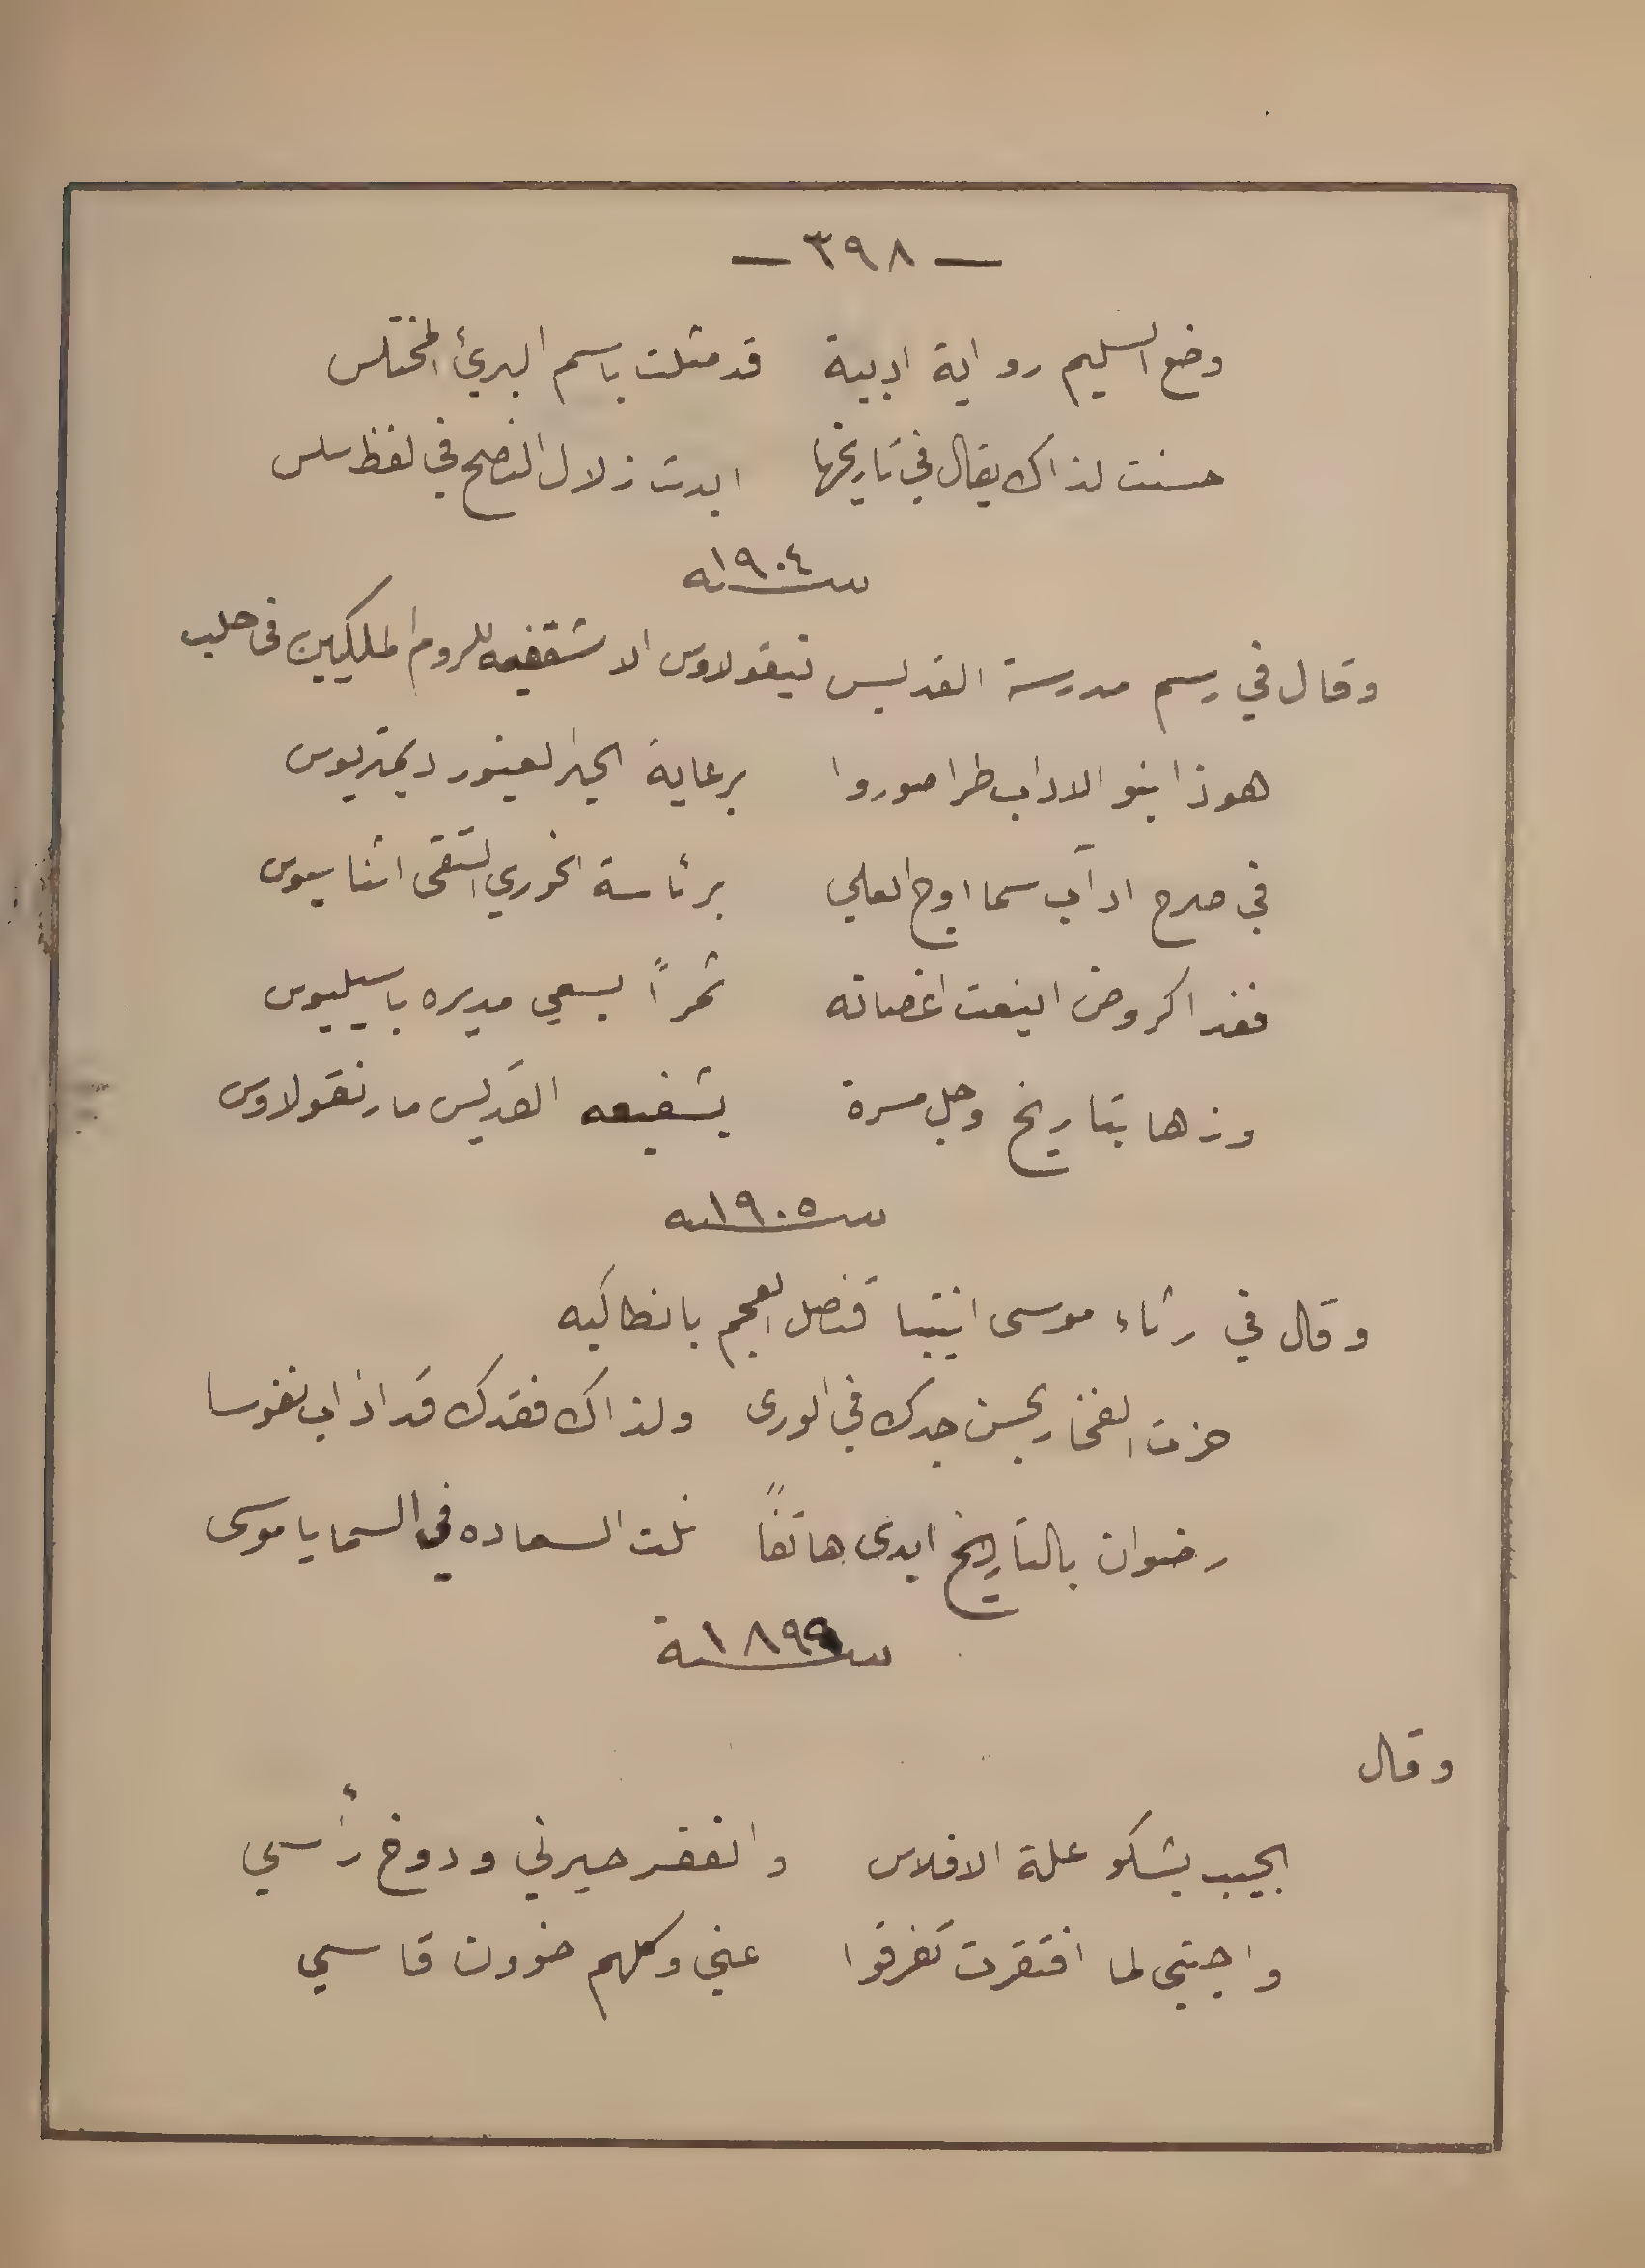 — ٣٩٨ —
وضع السليم رواية ادبية قد مثلت باسم البريء المختلس
حسنت لذاك يقال في تاريخها ابدت زلال النصح في لفظ سلس
سنه ١٩٠٤
وقال في رسم مدرسة القديس نيقولاوس الاسقفيه للروم الملكيين في حلب
هوذا بنو الاداب طرا صوروا برعاية الحبر الغيور ديمتريوس
في صرح اداب سما اوج العلي برئاسة الخوري التقى اثناسيوس
فغدا كروض اينعت اغصانه ثمراً بسعي مديره باسيليوس
وزها بتاريخ وجل مسرة بشفيعه القديس مار نقولاوس
سنه ١٩٠٥
وقال في رثاء موسى انتيبا قنصل العجم بانطاكيه
حزت الفخار بحسن جدك في الورى ولذاك فقدك قد اذاب نفوسا
رضوان بالتاريخ ابدى هاتفاً نلت السعاده في السما يا موسى
سنة ١٨٩٩
وقال
الجيب يشكو علة الافلاس والفقر حيرني ودوخ رأسي
واحبتي لما افتقرت تفرقوا عني وكلهم خؤون قاسي